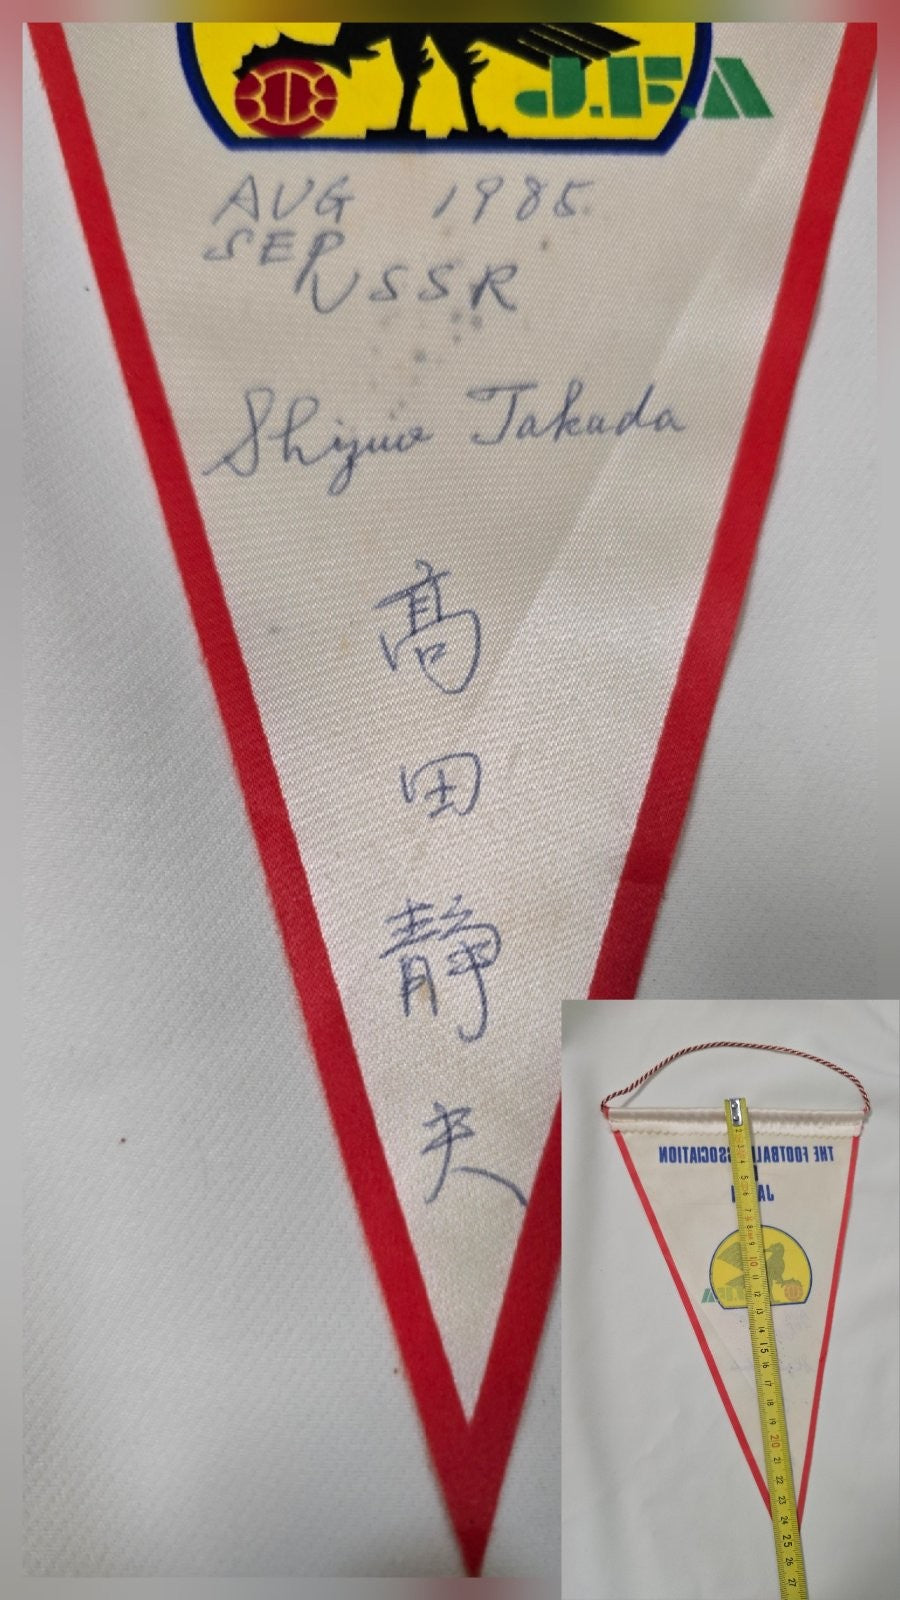 J.F.A
AUG 1985.
SEP
USSR
Shizuo Takada
高
田
静
夫
THE FOOTBALL ASSOCIATION
2
3
4
5
6
7
8
9
10
11
12
13
14
15
16
17
18
19
20
21
22
23
24
25
26
27